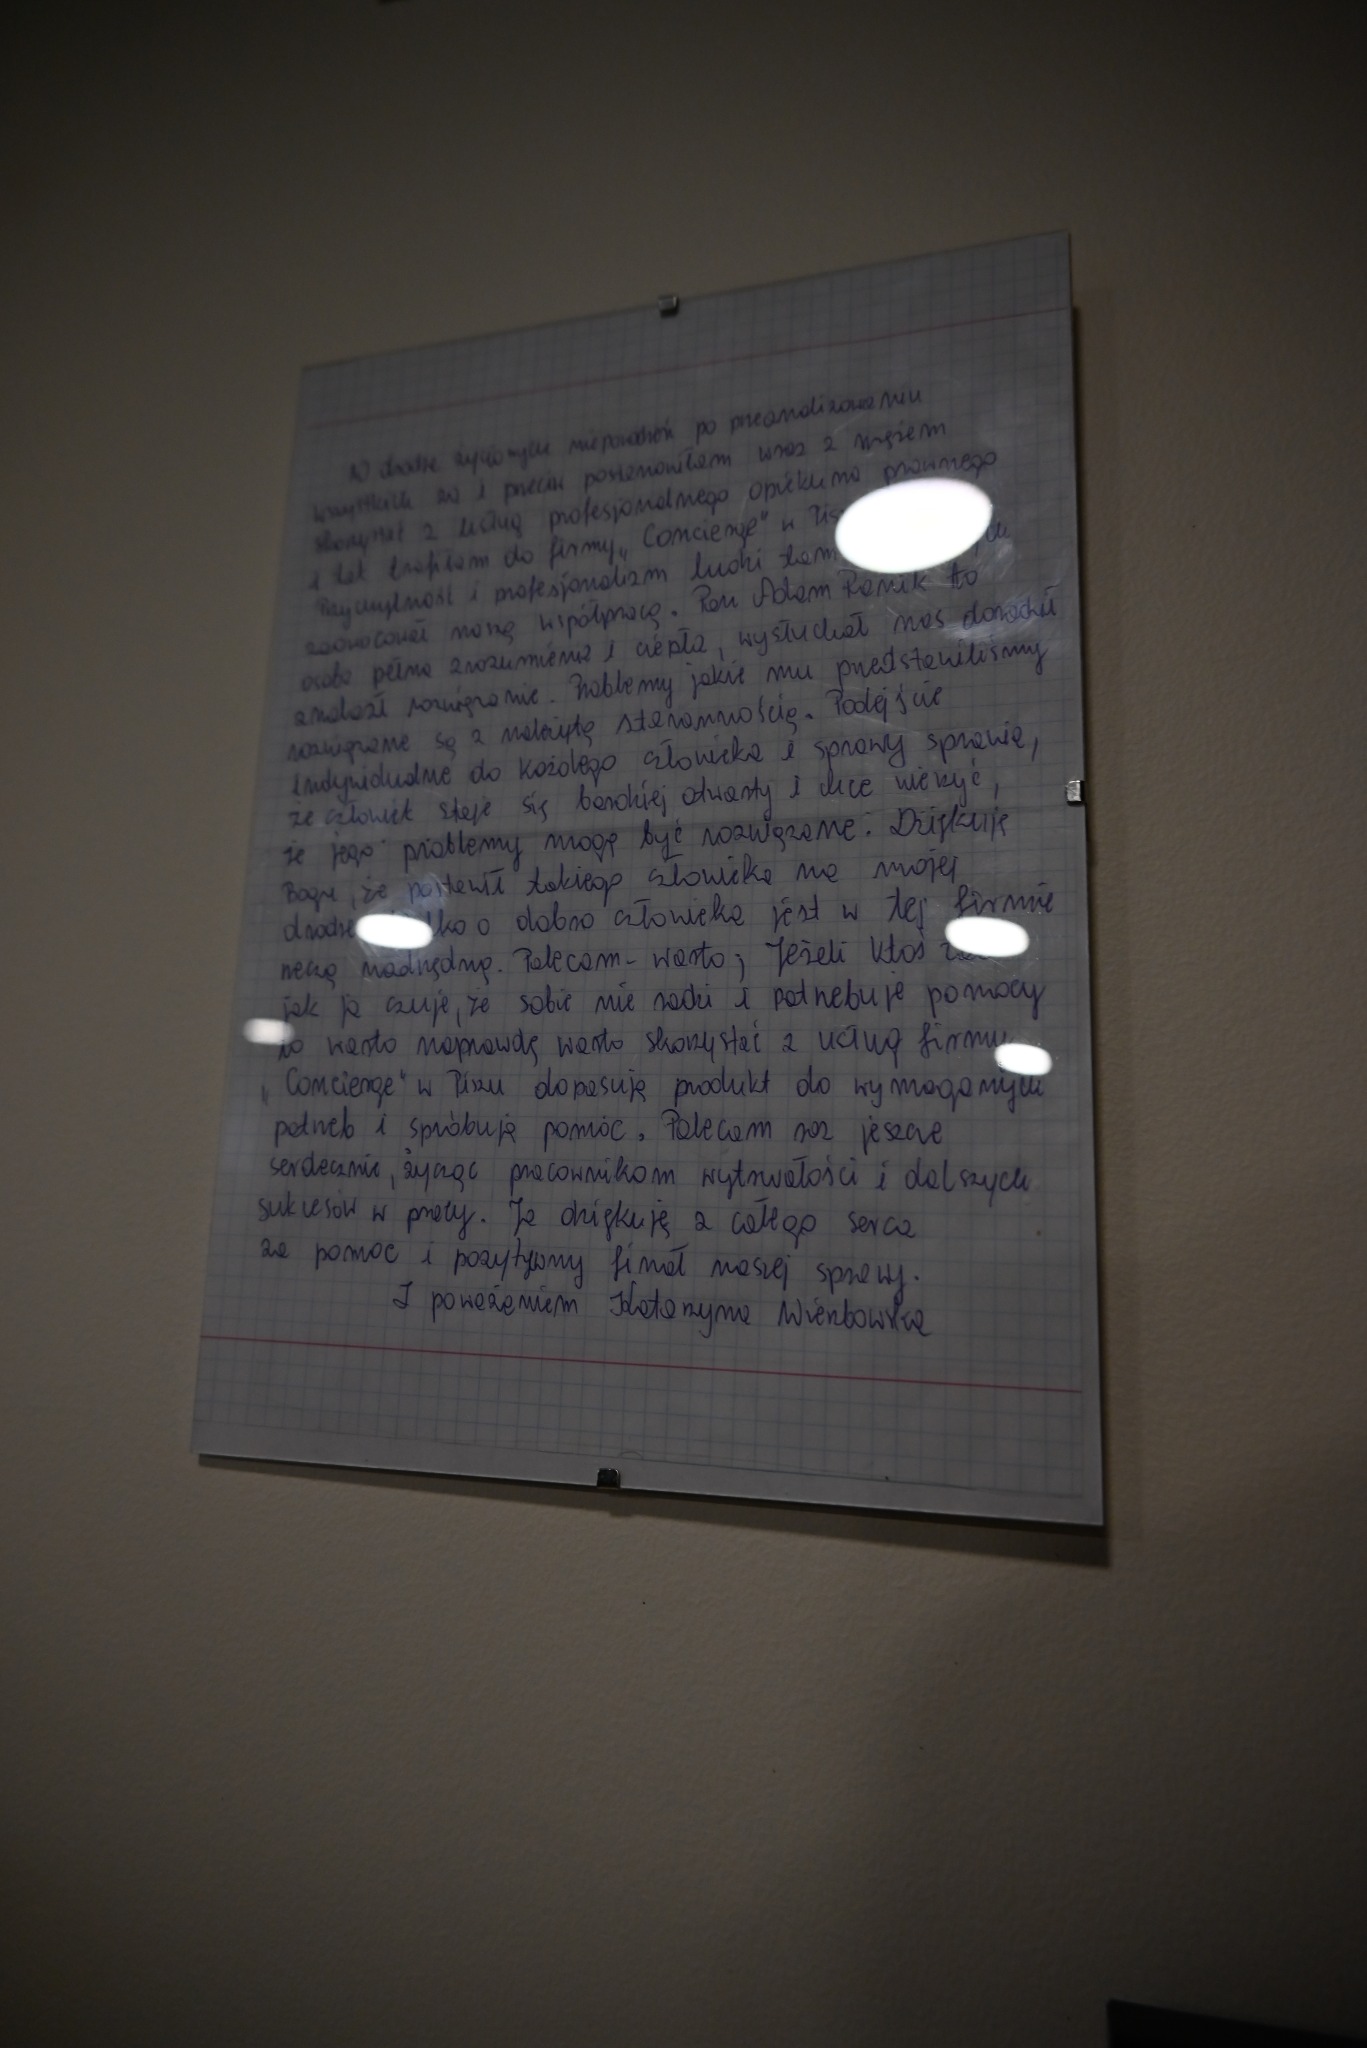 W drodze życiowych niepowodzeń po przeanalizowaniu
wszystkich za i przeciw postanowiłam wraz z mężem
skorzystać z usług profesjonalnego opiekuna prawnego
i tak trafiłam do firmy „Concierge" w
Przychylność i profesjonalizm ludzi
zaowocował naszą współpracą. Pan Adam to
osoba pełna zrozumienia i ciepła, wysłuchał nas doradził
znalazł rozwiązanie. Problemy jakie mu przedstawiliśmy
rozwiązane są z należytą starannością. Podejście
indywidualne do każdego człowieka i sprawy sprawia,
że człowiek staje się bardziej otwarty i chce wierzyć,
że jego problemy mogą być rozwiązane. Dziękuję
Bogu, że postawił takiego człowieka na mojej
drodze o dobro człowieka jest w tej firmie
rzeczą nadrzędną. Polecam - warto; Jeżeli ktoś
jak ja czuje, że sobie nie radzi i potrzebuje pomocy
to warto naprawdę warto skorzystać z usług firmy
„Concierge" w Piszu dopasują produkt do wymaganych
potrzeb i spróbują pomóc. Polecam raz jeszcze
serdecznie, życząc pracownikom wytrwałości i dalszych
sukcesów w pracy. Ja dziękuję z całego serca
za pomoc i pozytywny finał naszej sprawy.
Z poważaniem Katarzyna Wierzbowska